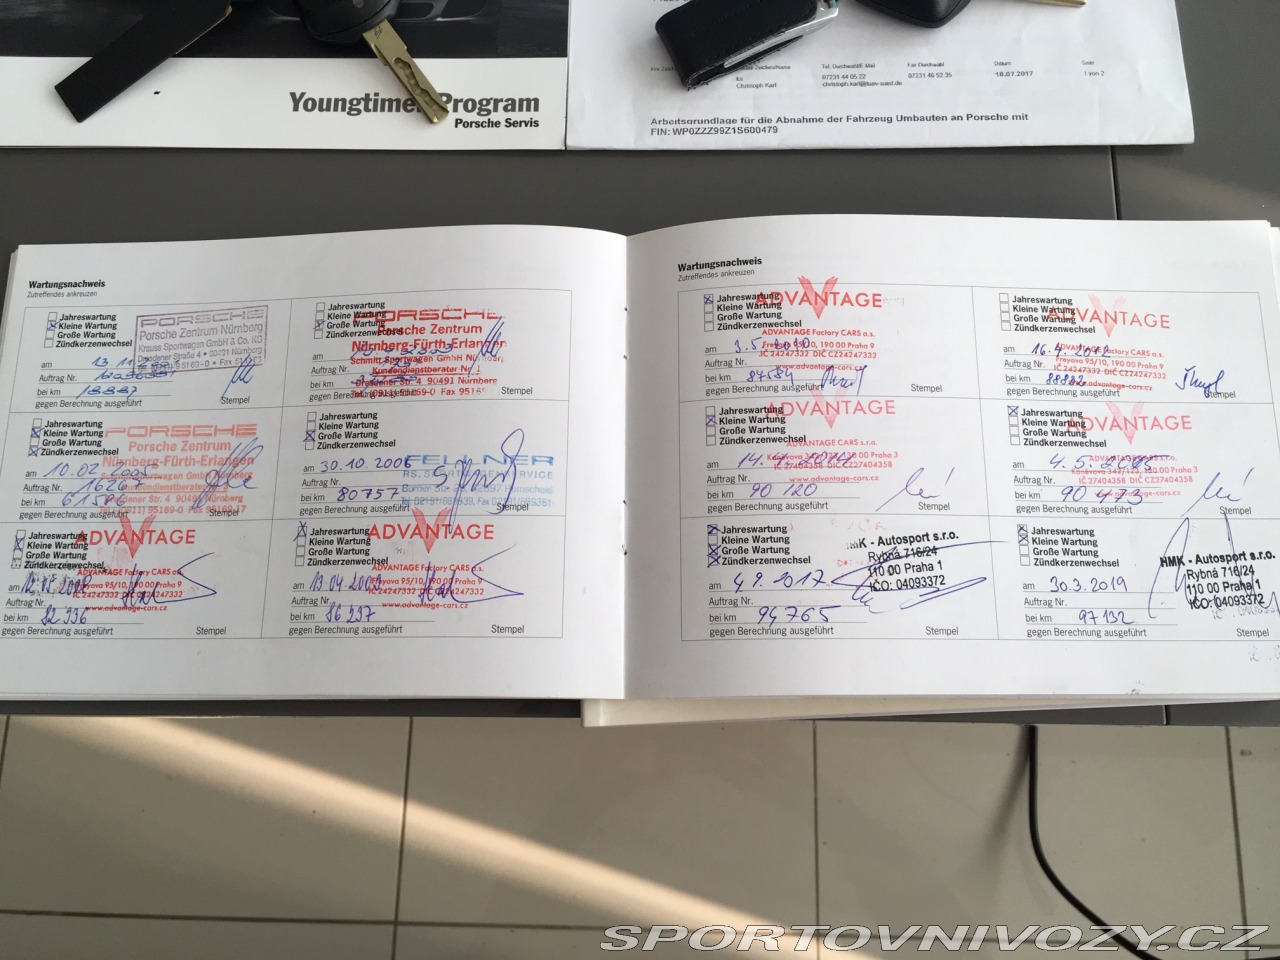 Youngtimer Program
Porsche Servis
Tel. Durchwahl/E-Mail
Fax Durchwahl
Datum
Seite
ks
07231 44 05 22
07231 46 52 35
18.07.2017
1 von 2
Christoph Karl
christoph.karl@tuev-sued.de
Arbeitsgrundlage für die Abnahme der Fahrzeug Umbauten an Porsche mit
FIN: WP0ZZZ99Z1S600479
Wartungsnachweis
Zutreffendes ankreuzen
Jahreswartung
Kleine Wartung
Große Wartung
Zündkerzenwechsel
am 13 11
Auftrag Nr.
bei km 18887
gegen Berechnung ausgeführt
Stempel
PORSCHE
Porsche Zentrum Nürnberg
Krauss Sportwagen GmbH & Co. KG
Dresdener Straße 4 • 90491 Nürnberg
Jahreswartung
Kleine Wartung
Große Wartung
Zündkerzenwechsel
am
Auftrag Nr.
bei km
gegen Berechnung ausgeführt
Stempel
PORSCHE
Porsche Zentrum
Nürnberg-Fürth-Erlangen
Schmitt Sportwagen GmbH Nürnberg
Kundendienstberater Nr. 1
Dresdener Str. 4 90491 Nürnberg
Jahreswartung
Kleine Wartung
Große Wartung
Zündkerzenwechsel
am 10.02.2005
Auftrag Nr.
bei km 61506
gegen Berechnung ausgeführt
Stempel
PORSCHE
Porsche Zentrum
Nürnberg-Fürth-Erlangen
Jahreswartung
Kleine Wartung
Große Wartung
Zündkerzenwechsel
am 30.10.2006
Auftrag Nr.
bei km 80757
gegen Berechnung ausgeführt
FELLNER
Jahreswartung
Kleine Wartung
Große Wartung
Zündkerzenwechsel
am
Auftrag Nr.
bei km 82 336
gegen Berechnung ausgeführt
Stempel
ADVANTAGE
ADVANTAGE Factory CARS a.s.
Freyova 95/10, 190 00 Praha 9
IČ 24247332 DIČ CZ24247332
www.advantage-cars.cz
Jahreswartung
Kleine Wartung
Große Wartung
Zündkerzenwechsel
am
Auftrag Nr.
bei km 86 297
gegen Berechnung ausgeführt
Stempel
ADVANTAGE
ADVANTAGE Factory CARS a.s.
Freyova 95/10, 190 00 Praha 9
IČ 24247332 DIČ CZ24247332
www.advantage-cars.cz
Wartungsnachweis
Zutreffendes ankreuzen
Jahreswartung
Kleine Wartung
Große Wartung
Zündkerzenwechsel
am 3.5.2010
Auftrag Nr.
bei km 87684
gegen Berechnung ausgeführt
Stempel
ADVANTAGE
ADVANTAGE Factory CARS a.s.
Freyova 95/10, 190 00 Praha 9
IČ 24247332 DIČ CZ24247332
www.advantage-cars.cz
Jahreswartung
Kleine Wartung
Große Wartung
Zündkerzenwechsel
am 16.4.2012
Auftrag Nr.
bei km 88882
gegen Berechnung ausgeführt
Stempel
ADVANTAGE
ADVANTAGE Factory CARS a.s.
Freyova 95/10, 190 00 Praha 9
IČ 24247332 DIČ CZ24247332
www.advantage-cars.cz
Jahreswartung
Kleine Wartung
Große Wartung
Zündkerzenwechsel
am
Auftrag Nr.
bei km 90 120
gegen Berechnung ausgeführt
Stempel
ADVANTAGE
ADVANTAGE CARS s.r.o.
IČ 27404358 DIČ CZ27404358
www.advantage-cars.cz
Jahreswartung
Kleine Wartung
Große Wartung
Zündkerzenwechsel
am
Auftrag Nr.
bei km 90 473
gegen Berechnung ausgeführt
Stempel
ADVANTAGE
ADVANTAGE CARS s.r.o.
IČ 27404358 DIČ CZ27404358
www.advantage-cars.cz
Jahreswartung
Kleine Wartung
Große Wartung
Zündkerzenwechsel
am 4.9.2017
Auftrag Nr.
bei km 94765
gegen Berechnung ausgeführt
Stempel
HMK - Autosport s.r.o.
Rybná 716/24
110 00 Praha 1
IČO: 04093372
Jahreswartung
Kleine Wartung
Große Wartung
Zündkerzenwechsel
am 30.3.2019
Auftrag Nr.
bei km 97132
gegen Berechnung ausgeführt
Stempel
HMK - Autosport s.r.o.
Rybná 716/24
110 00 Praha 1
IČO: 04093372
SPORTOVNIVOZY.CZ